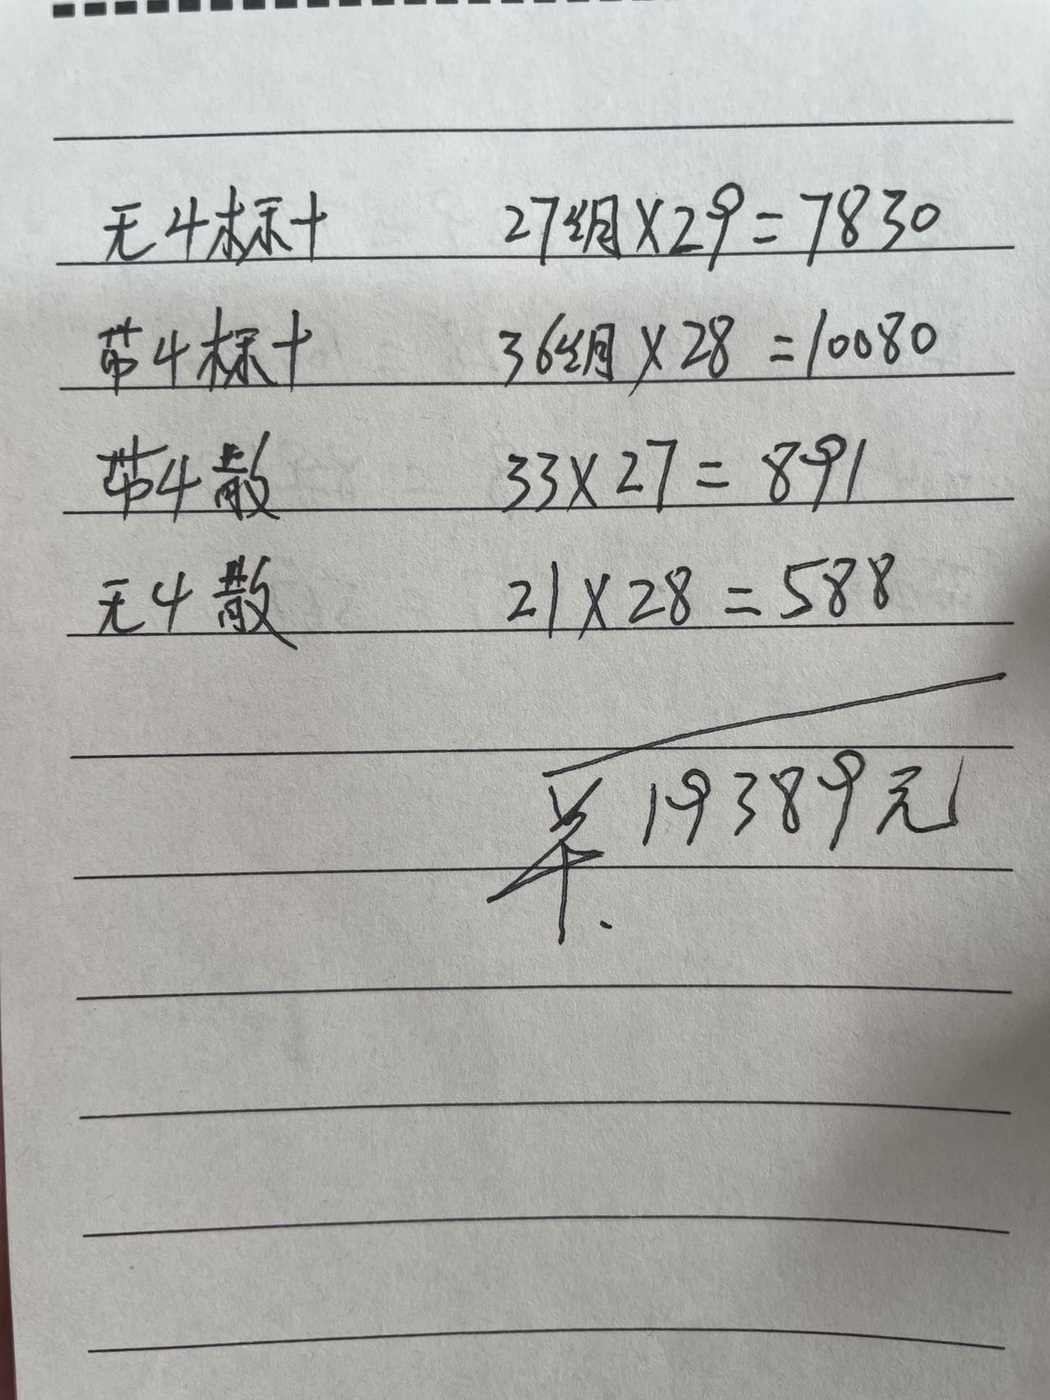 无4标十 27组×29=7830
带4标十 36组×28=10080
带4散 33×27=891
无4散 21×28=588
19389元